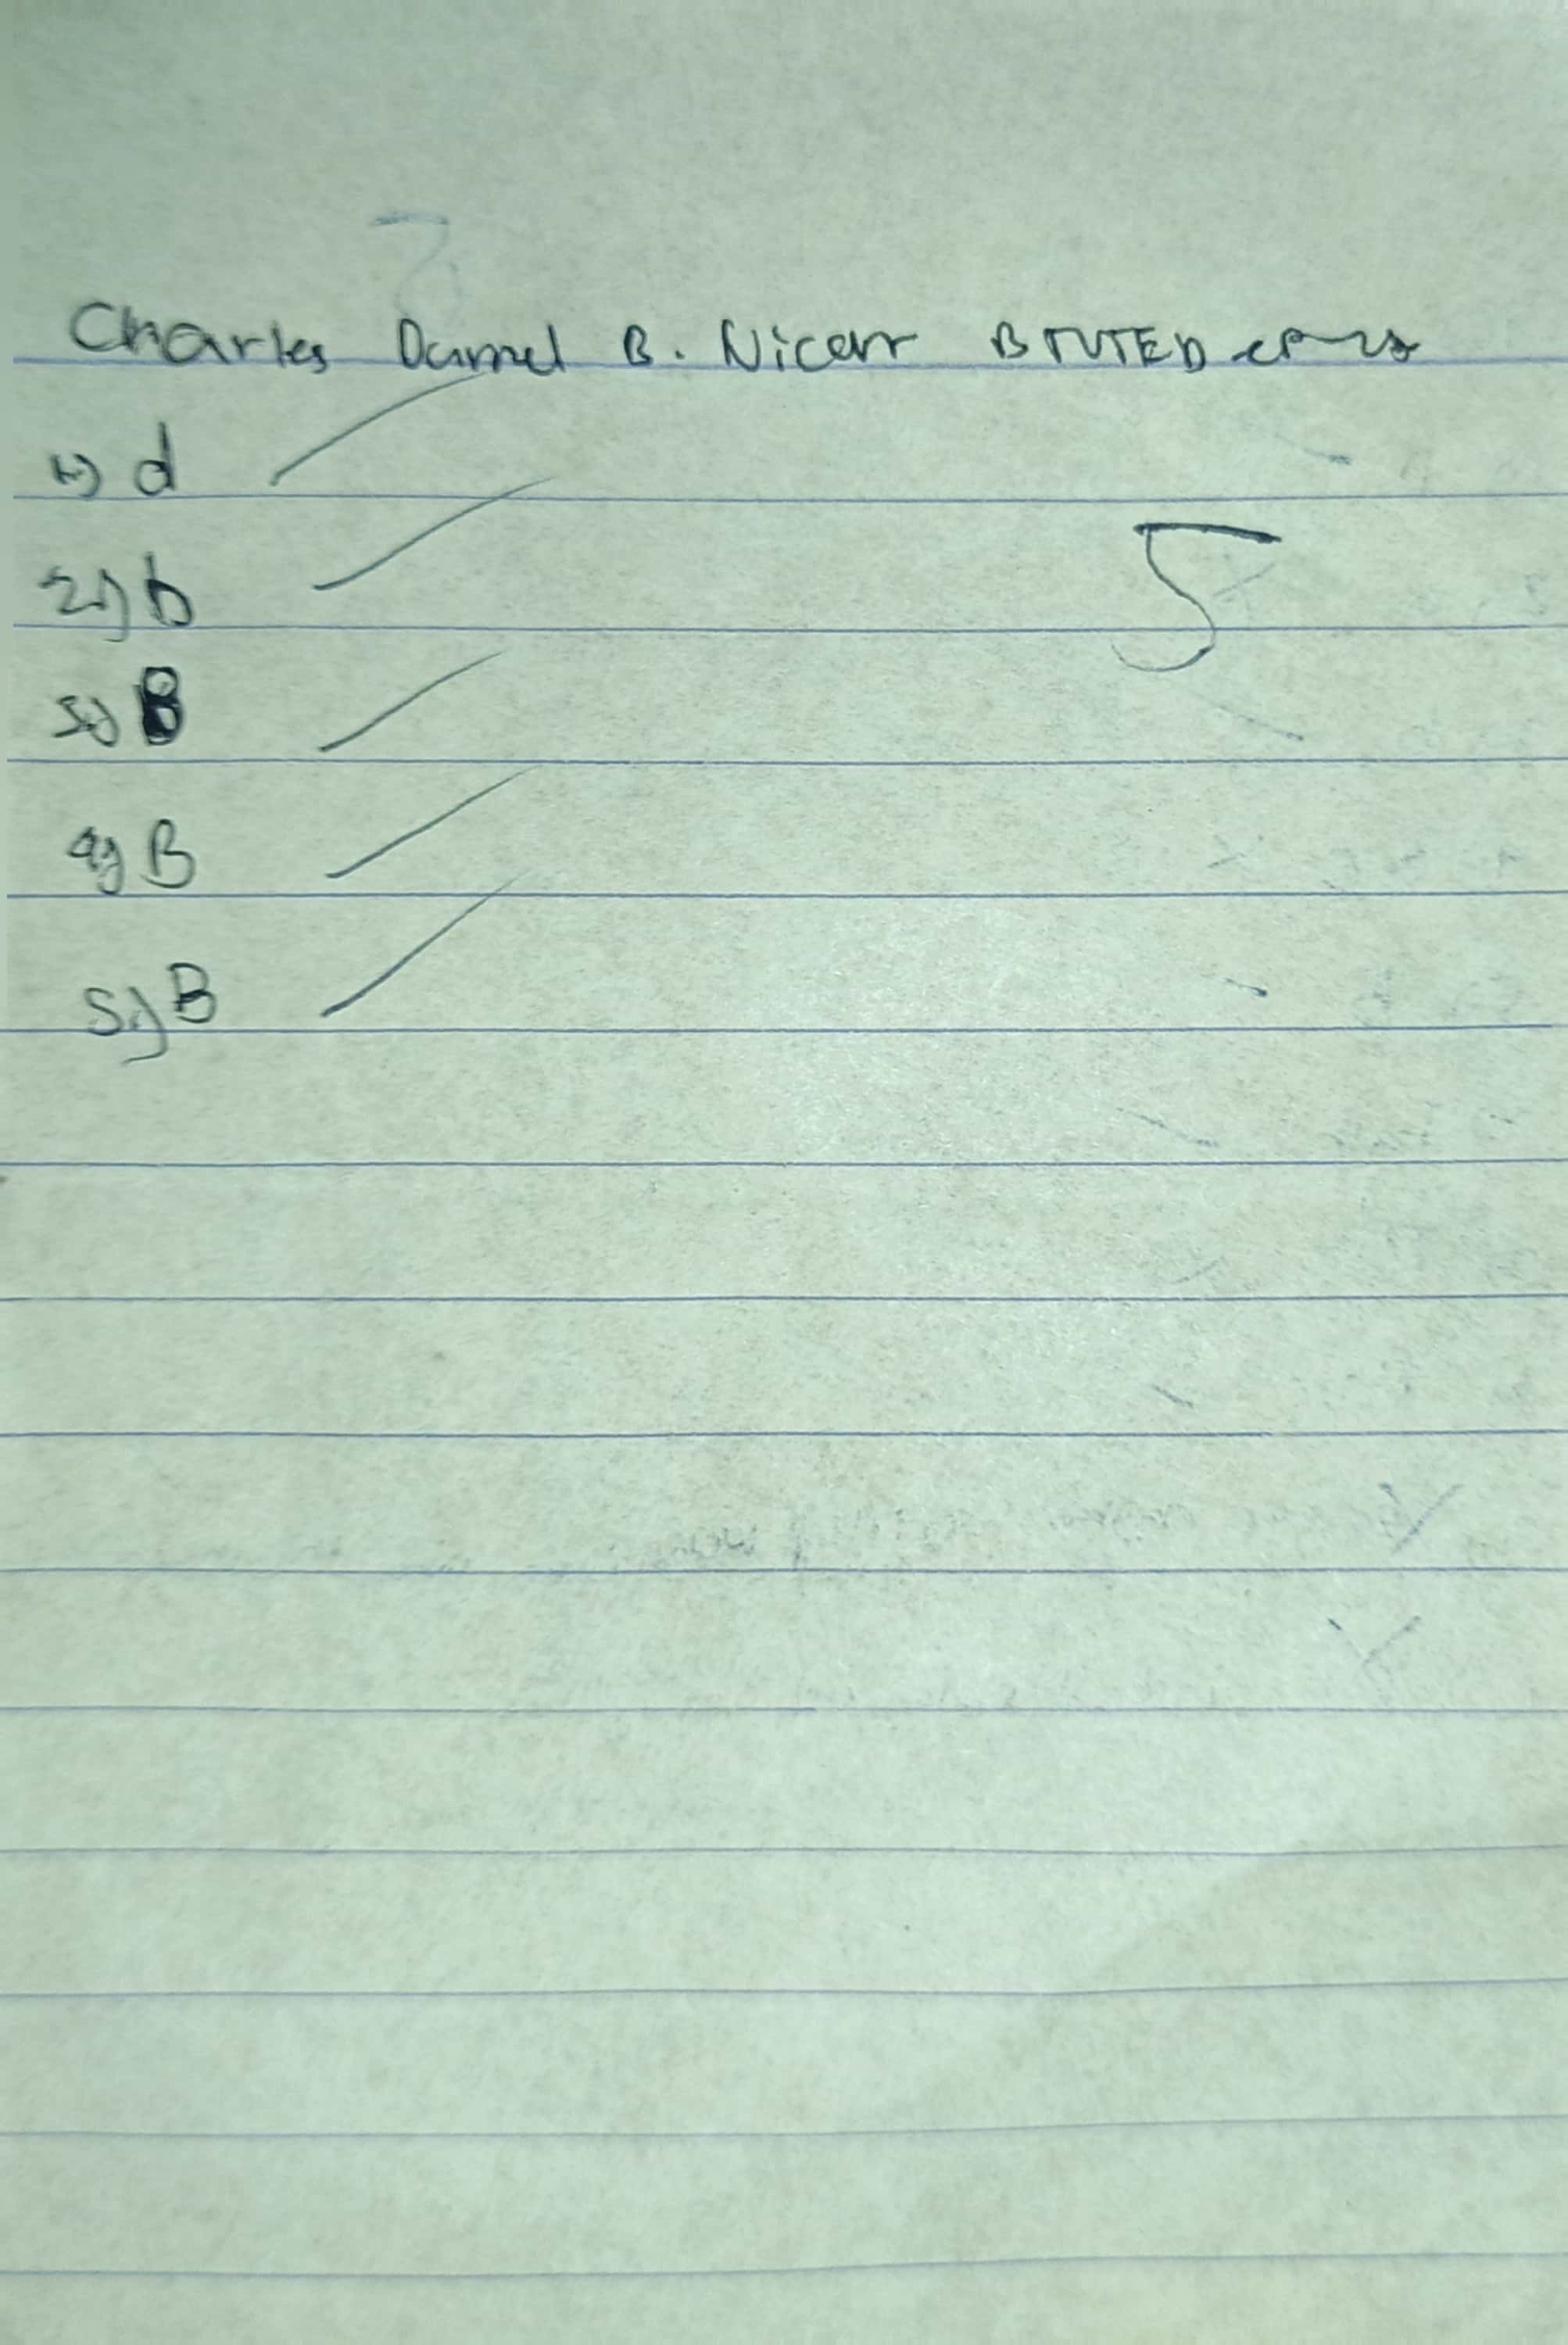 Charles Darnel B. Nicor BTVTED
1.) d
2.) b
3.) B
4.) B
5.) B
5